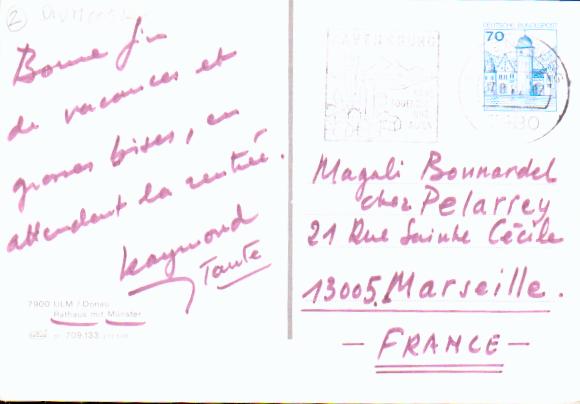 2
Bonne fin
de vacances et
grosses bises, en
attendant la rentrée.
Raymond
Tante
7900 ULM / Donau
Rathaus mit Münster
709.133
RAVENSBURG
DEUTSCHE BUNDESPOST
70
Magali Bonnardel
chez Pelarrey
21 Rue Sainte Cécile
13005. Marseille.
— FRANCE —